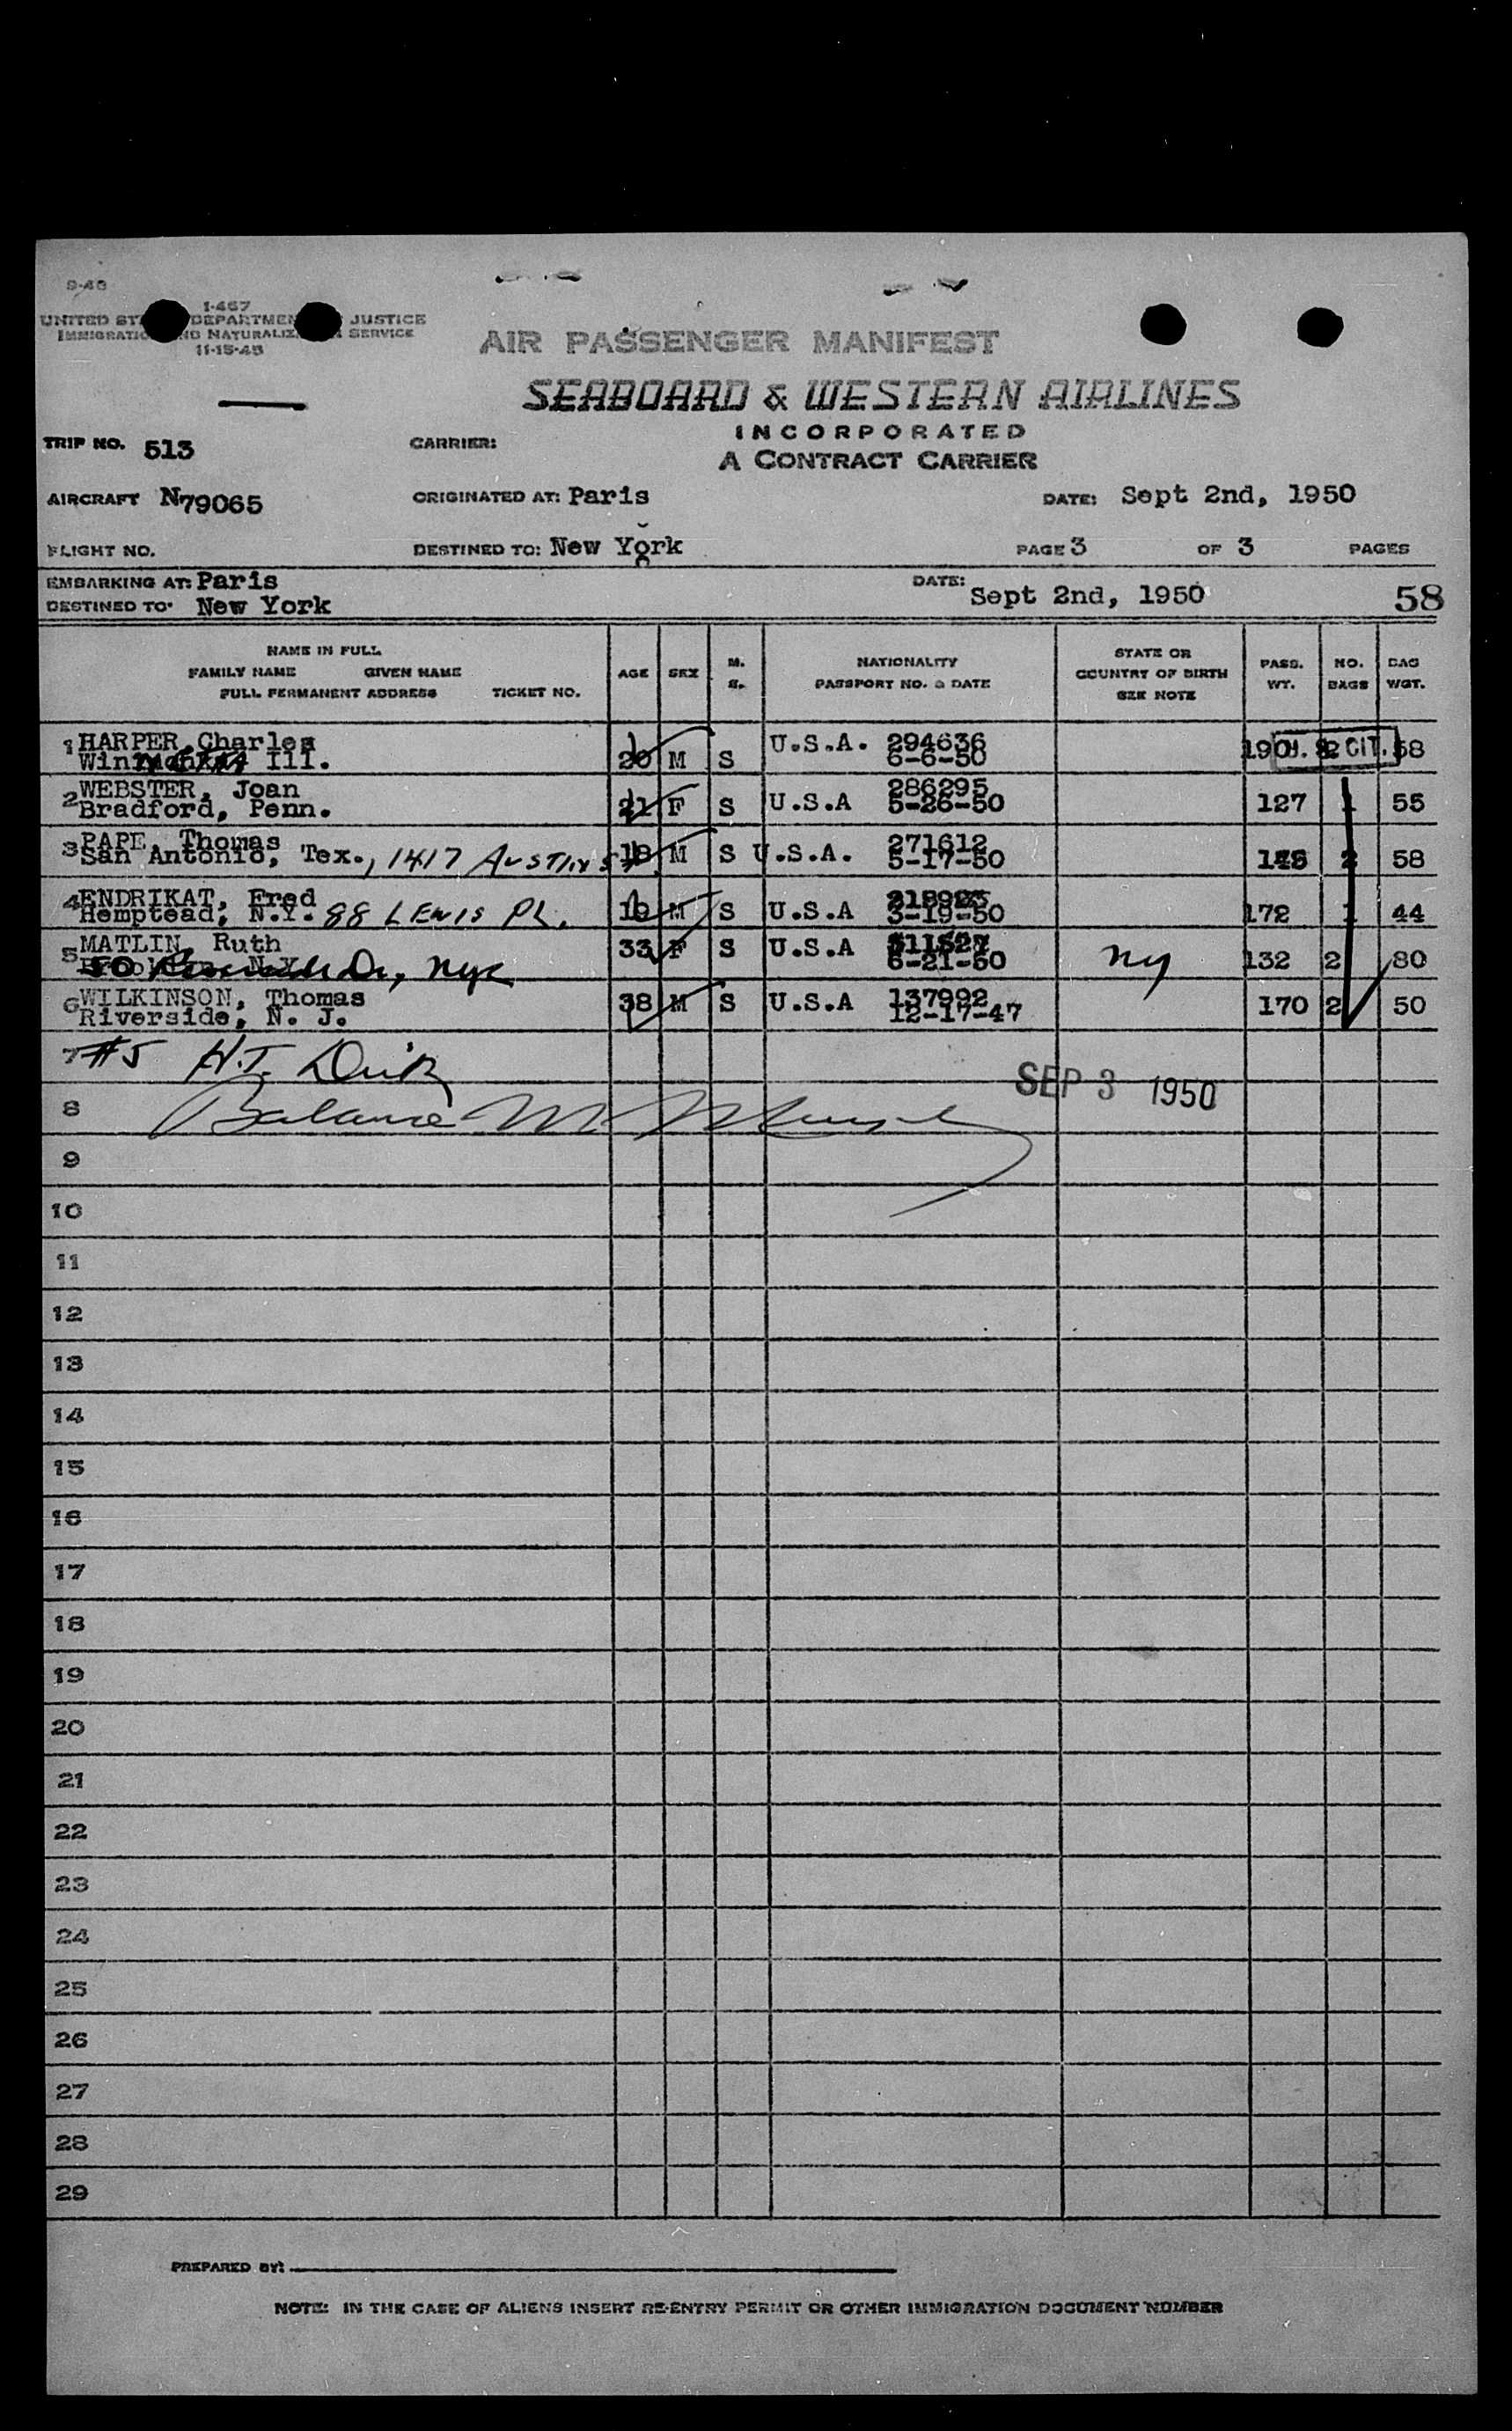 9-48
I-467
UNITED ST DEPARTMEN JUSTICE
IMMIGRATIO ND NATURALIZ SERVICE
11-15-45
AIR PASSENGER MANIFEST
SEABOARD & WESTERN AIRLINES
INCORPORATED
A CONTRACT CARRIER
TRIP NO. 513 CARRIER:
AIRCRAFT N79065 ORIGINATED AT: Paris DATE: Sept 2nd, 1950
FLIGHT NO. DESTINED TO: New York PAGE 3 OF 3 PAGES
EMBARKING AT: Paris DATE: Sept 2nd, 1950
DESTINED TO: New York 58
NAME IN FULL
FAMILY NAME GIVEN NAME
FULL PERMANENT ADDRESS TICKET NO.
AGE SEX M. S.
NATIONALITY
PASSPORT NO. & DATE
STATE OR
COUNTRY OF BIRTH
SEE NOTE
PASS. WT. NO. BAGS BAG WGT.
1 HARPER, Charles U.S.A. 294636
Ill. 20 M S 6-6-50 190 U.S. CIT. 58
2 WEBSTER, Joan 286295
Bradford, Penn. 21 F S U.S.A 5-26-50 127 1 55
3 PAPE, Thomas 271612
San Antonio, Tex., 1417 AUSTIN ST. 18 M S U.S.A. 5-17-50 2 58
4 ENDRIKAT, Fred
Hemptead, N.Y. 88 LEWIS PL. 19 M S U.S.A 3-19-50 172 1 44
5 MATLIN, Ruth 33 F S U.S.A
50 Dr, NYC 6-21-50 NY 132 2 80
6 WILKINSON, Thomas 38 M S U.S.A 137992
Riverside, N. J. 12-17-47 170 2 50
7 #5 H.T.
SEP 3 1950
8 Balance
9
10
11
12
13
14
15
16
17
18
19
20
21
22
23
24
25
26
27
28
29
PREPARED BY:
NOTE: IN THE CASE OF ALIENS INSERT RE-ENTRY PERMIT OR OTHER IMMIGRATION DOCUMENT NUMBER